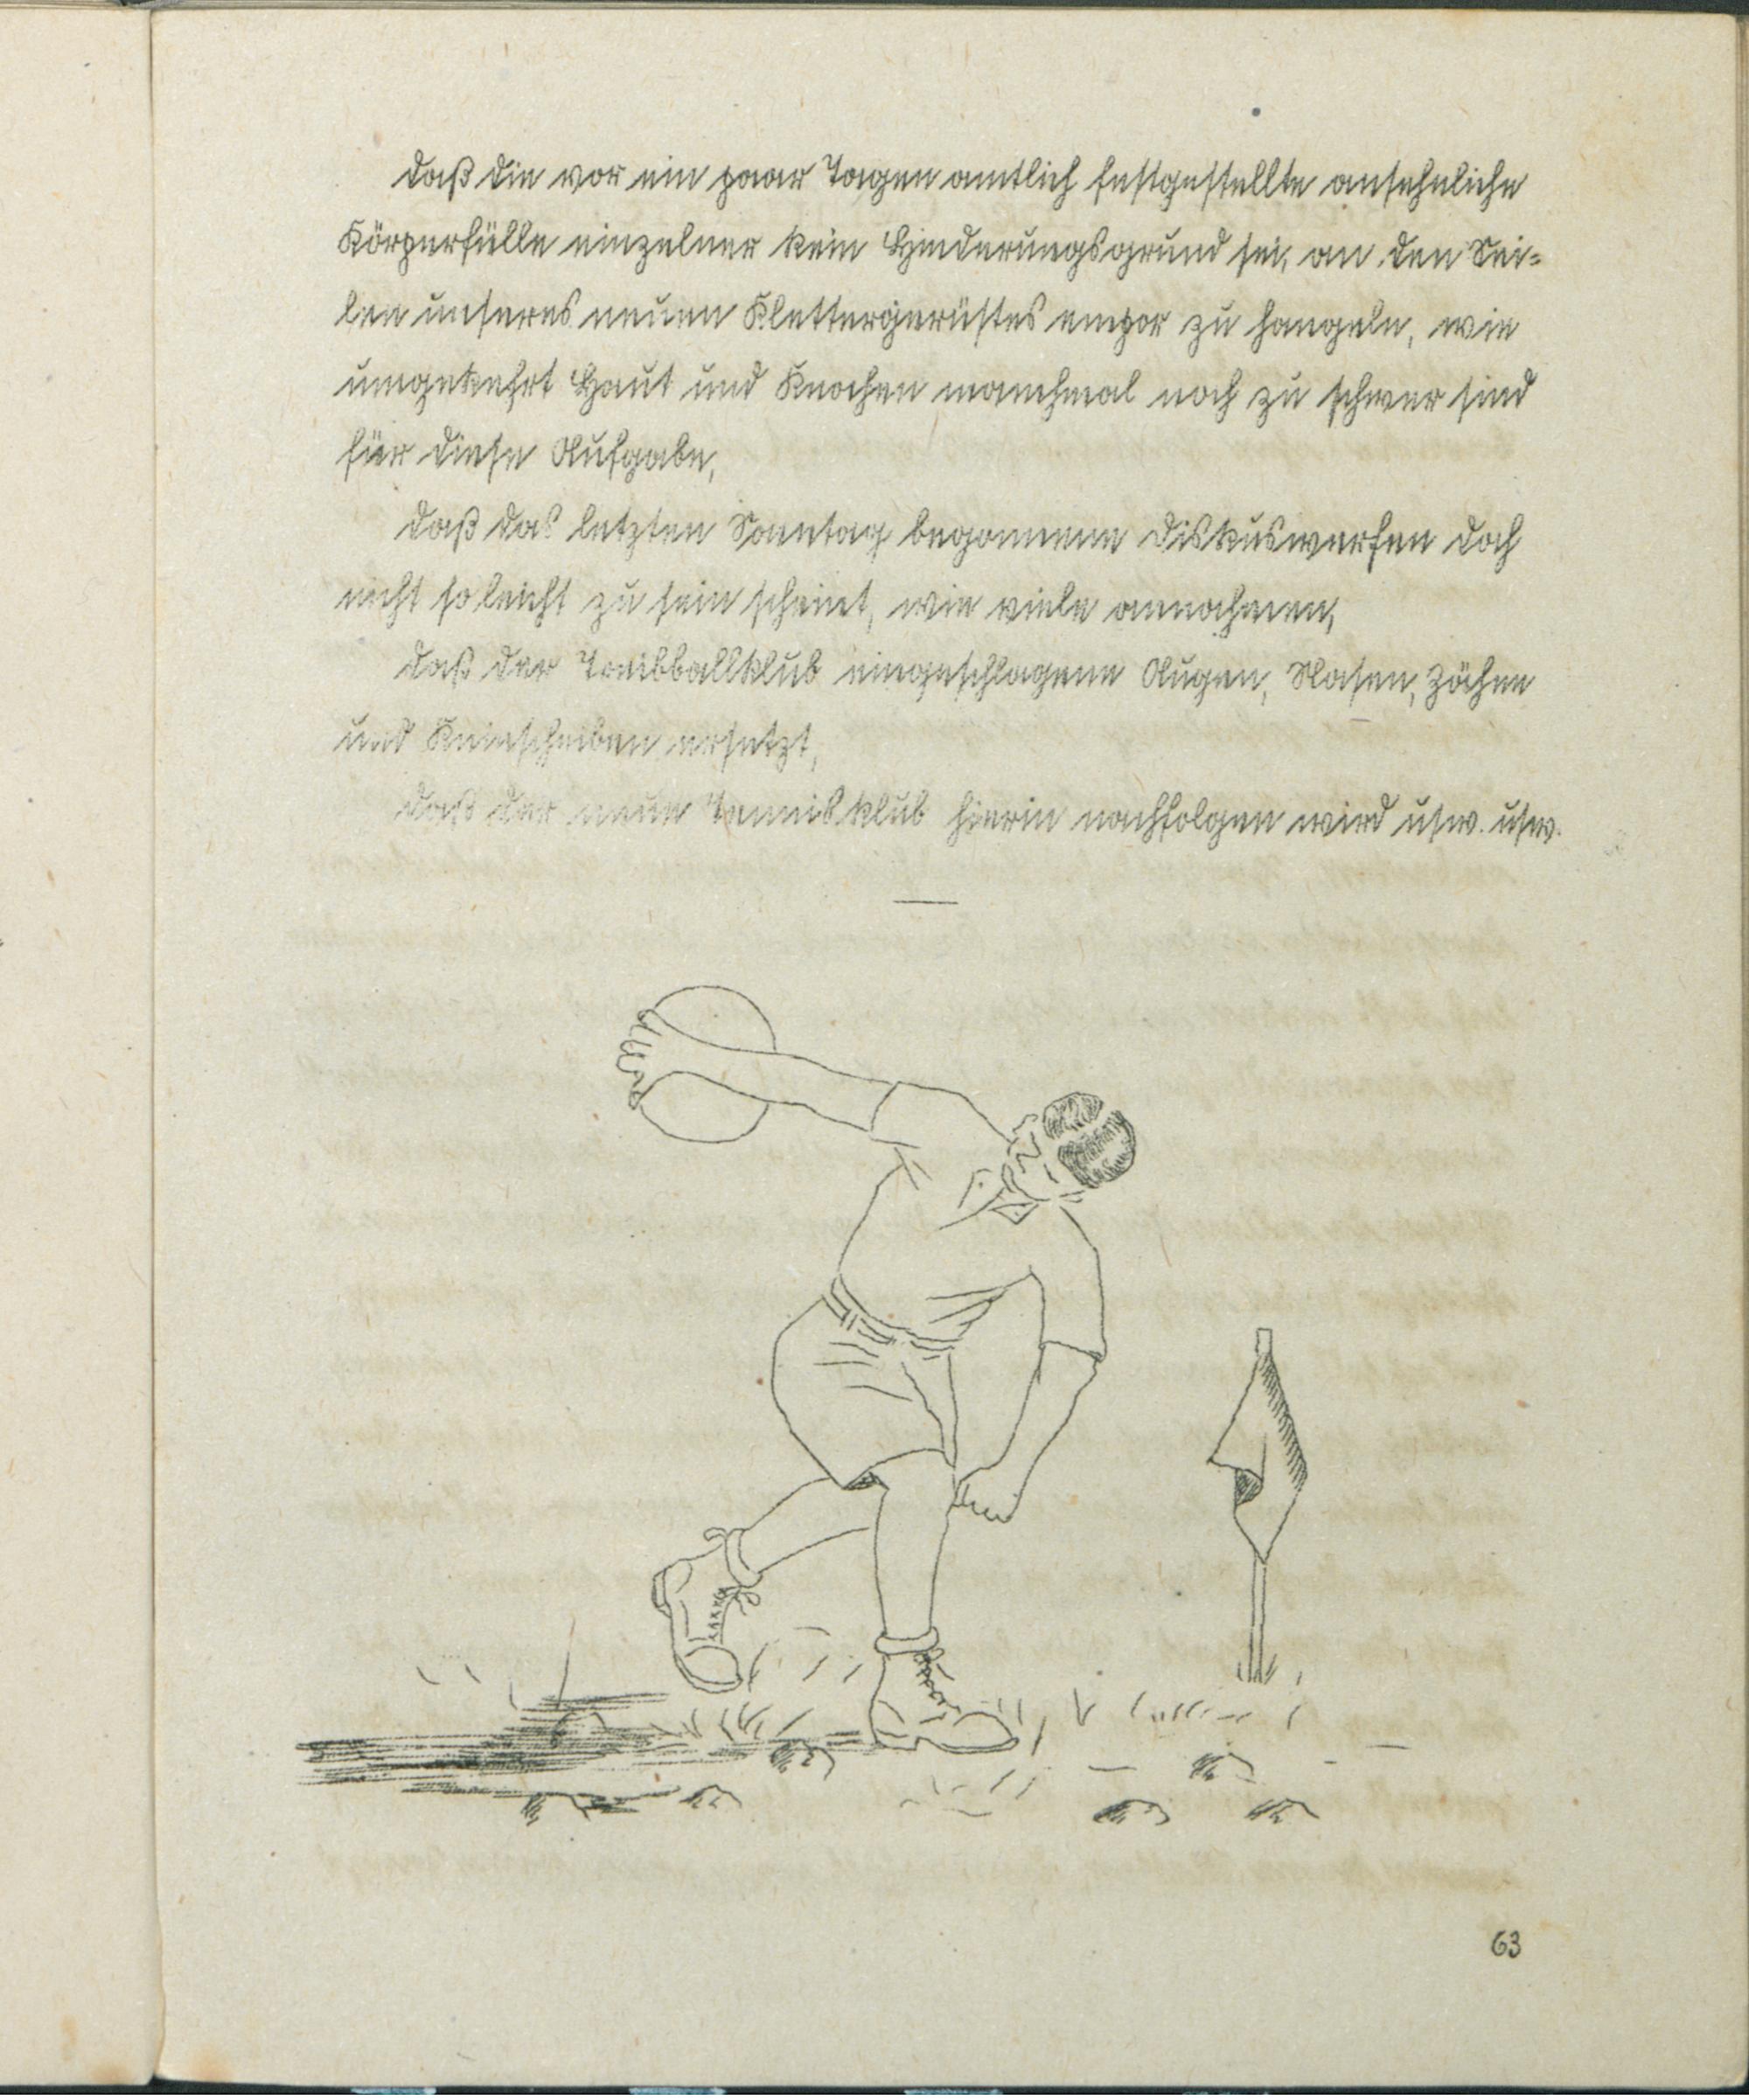 daß die vor ein paar Tagen amtlich festgestellte ansehnliche
Körperfülle einzelner kein Hinderungsgrund sei, an den Sei=
len unseres neuen Klettergerüstes empor zu hangeln, wie
umgekehrt Haut und Knochen manchmal noch zu schwer sind
für diese Aufgabe,
daß das letzten Sonntag begonnene Diskuswerfen doch
nicht so leicht zu sein scheint, wie viele annahmen,
daß der Treibballklub eingeschlagene Augen, Nasen, Zähne
und Kniescheiben ersetzt,
daß der neue Tennisklub hierin nachfolgen wird usw. usw.
63